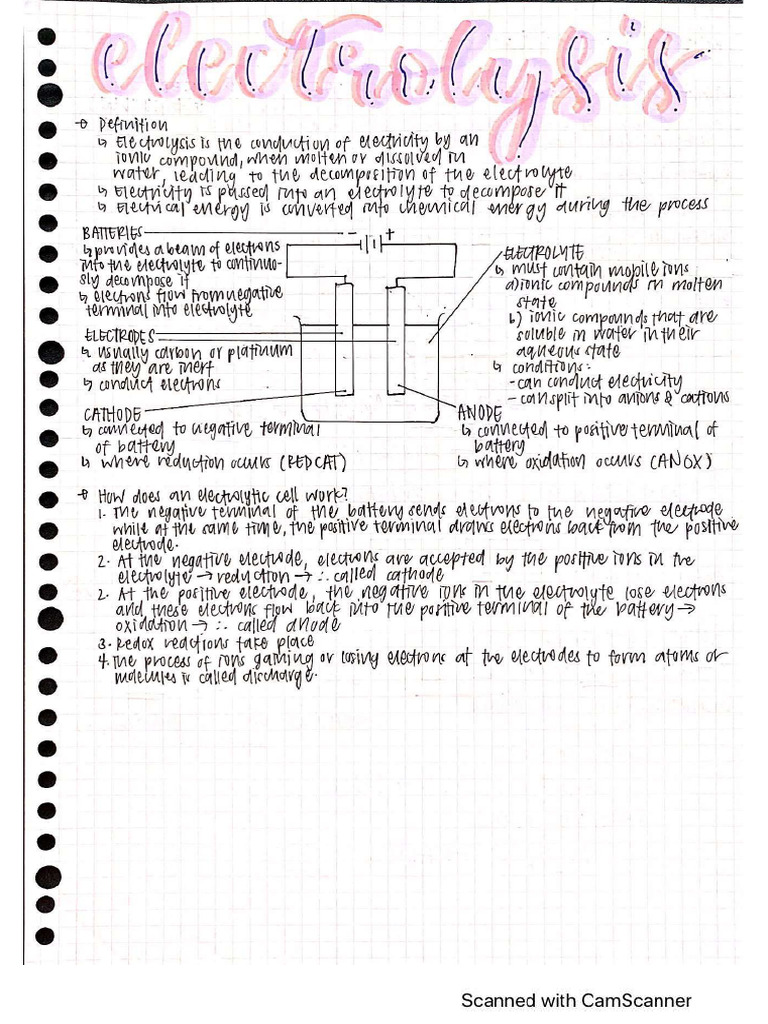 electrolysis
Definition
↳ Electrolysis is the conduction of electricity by an
ionic compound, when molten or dissolved in
water, leading to the decomposition of the electrolyte
↳ Electricity is passed into an electrolyte to decompose it
↳ Electrical energy is converted into chemical energy during the process
BATTERIES
↳ provides a beam of electrons
into the electrolyte to continuo-
sly decompose it
↳ electrons flow from negative
terminal into electrolyte
- +
ELECTROLYTE
↳ must contain mobile ions
a) ionic compounds in molten
state
b) ionic compounds that are
soluble in water in their
aqueous state
↳ conditions:
- can conduct electricity
- can split into anions & cations
ELECTRODES
↳ usually carbon or platinum
as they are inert
↳ conduct electrons
CATHODE
↳ connected to negative terminal
of battery
↳ where reduction occurs (REDCAT)
ANODE
↳ connected to positive terminal of
battery
↳ where oxidation occurs (ANOX)
How does an electrolytic cell work?
1. The negative terminal of the battery sends electrons to the negative electrode
while at the same time, the positive terminal draws electrons back from the positive
electrode.
2. At the negative electrode, electrons are accepted by the positive ions in the
electrolyte → reduction → ∴ called cathode
2. At the positive electrode, the negative ions in the electrolyte lose electrons
and these electrons flow back into the positive terminal of the battery →
oxidation → ∴ called anode
3. Redox reactions take place
4. The process of ions gaining or losing electrons at the electrodes to form atoms or
molecules is called discharge.
Scanned with CamScanner